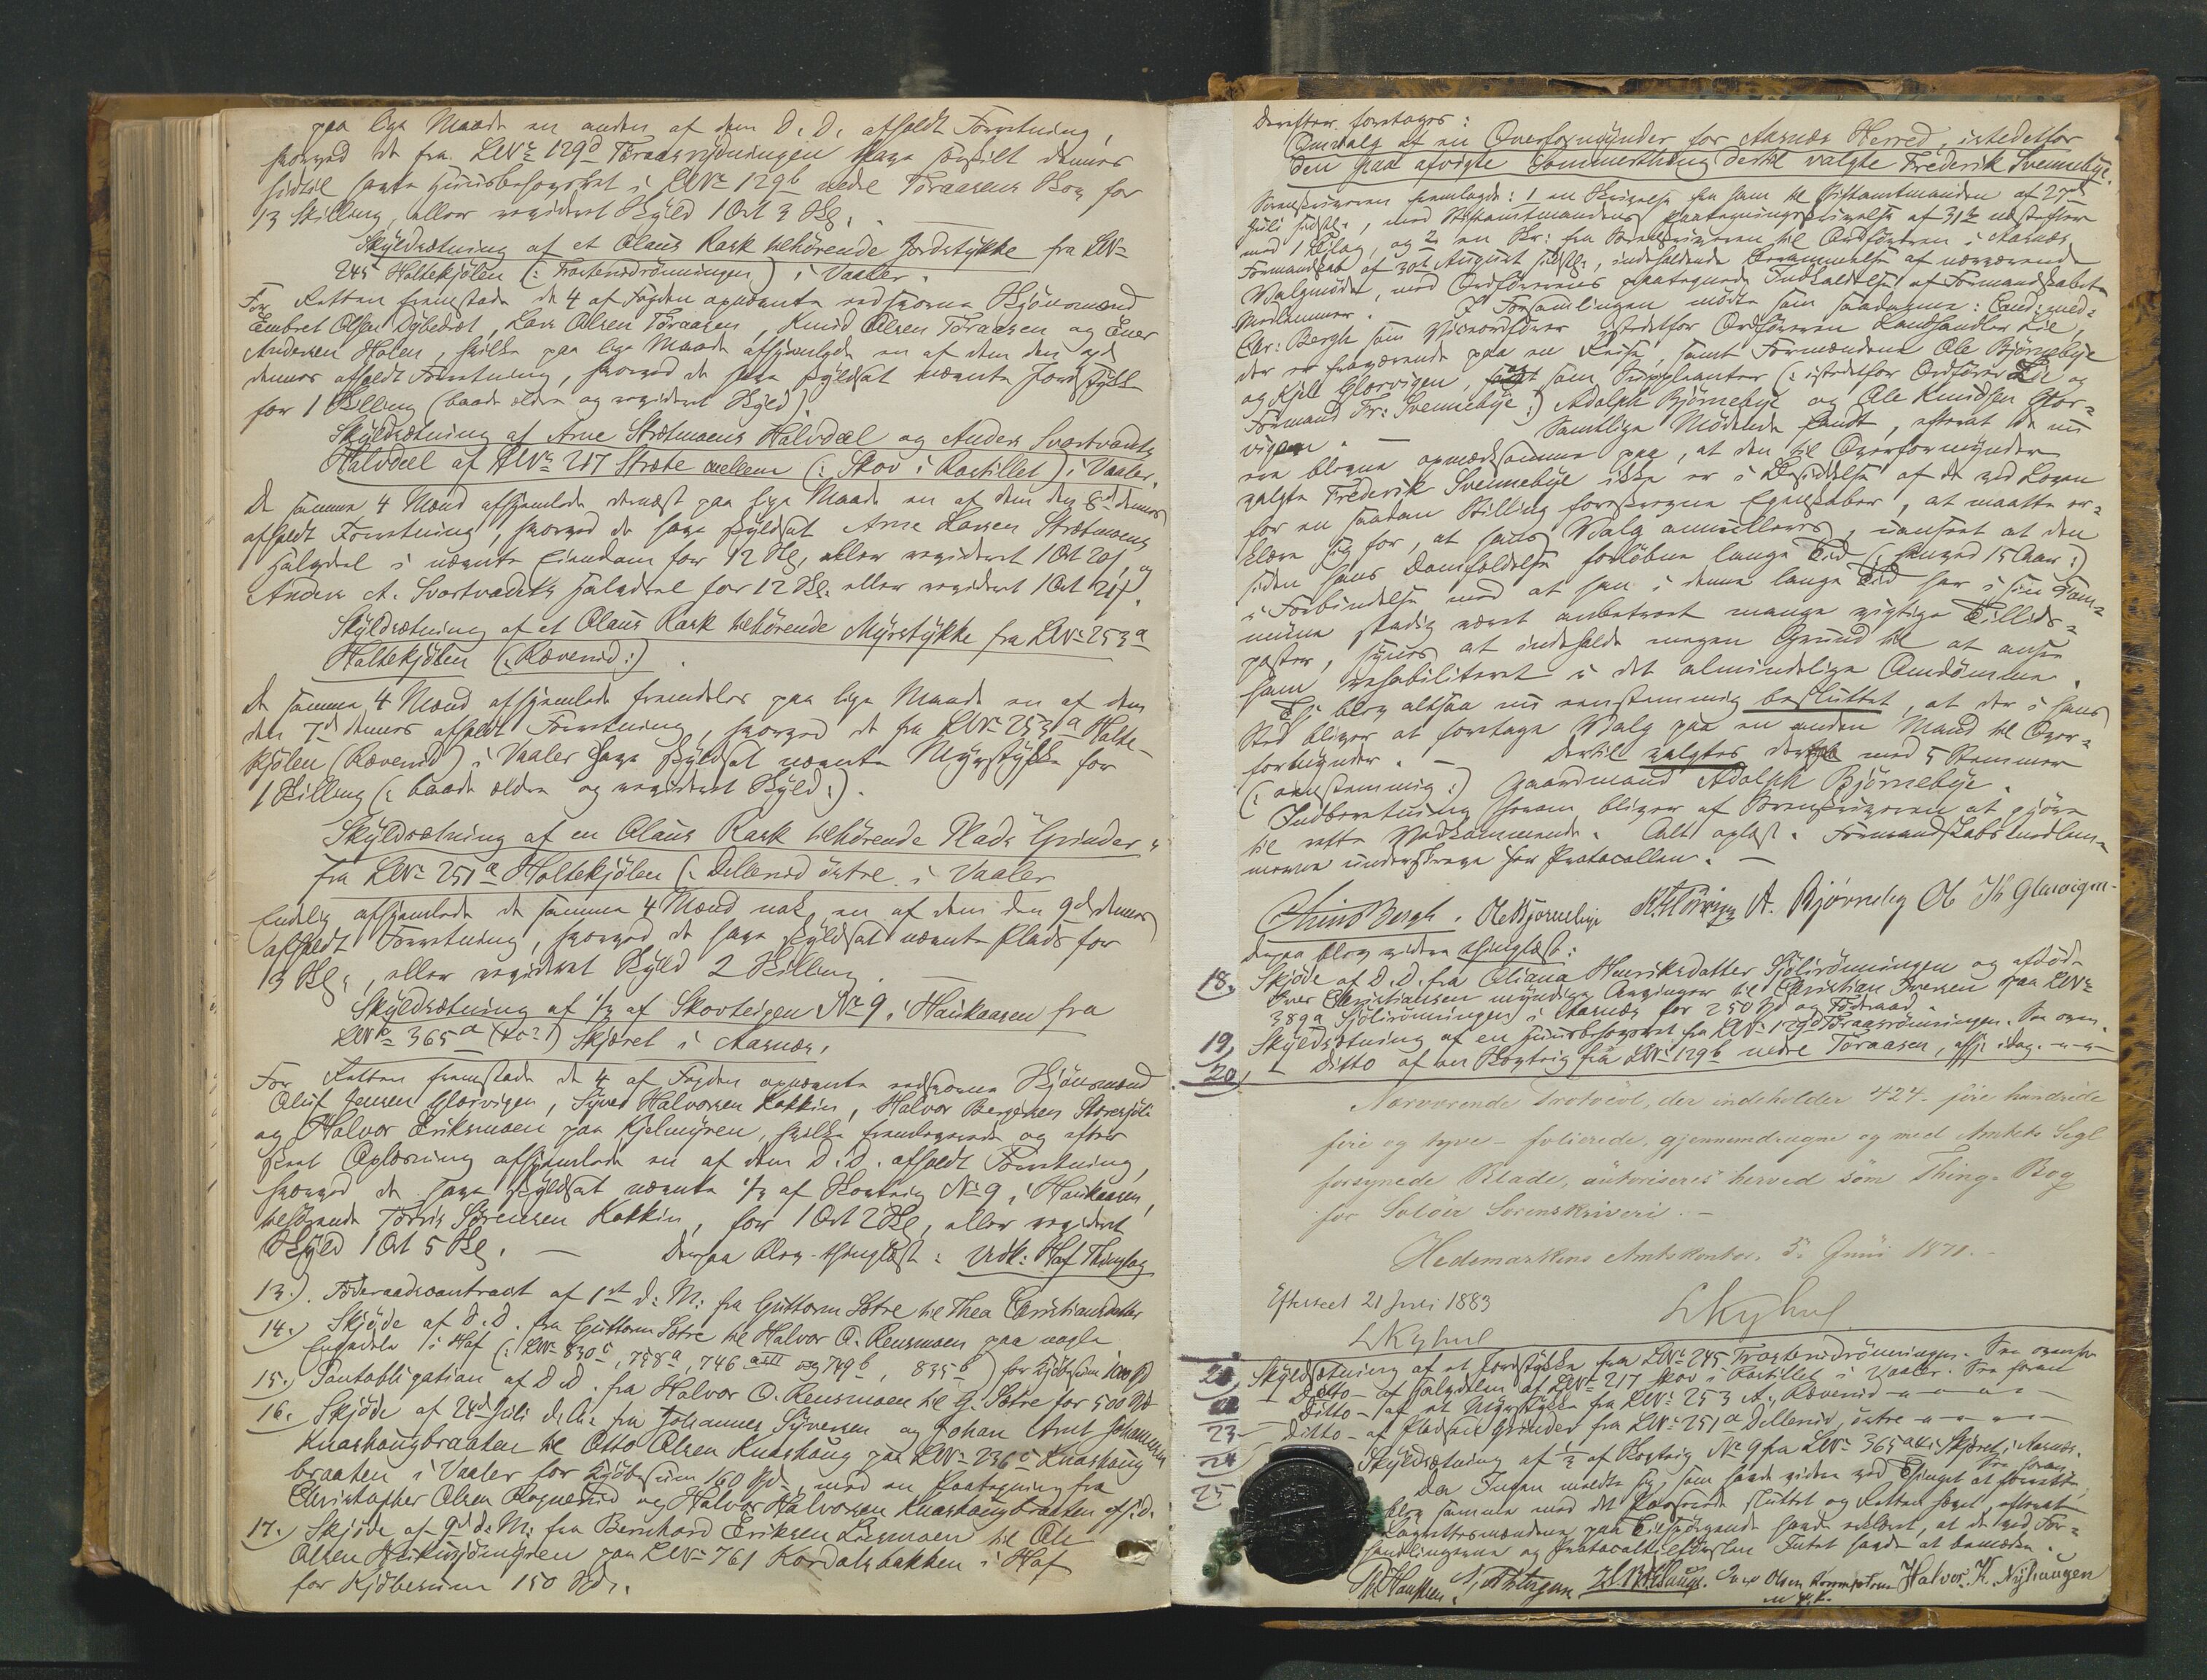 paa lige Maade en anden af dem D. D. afholdt Forretning,
hvorved de fra LNr 129d Toraasrydningen have særskilt dennes
hidtil havte Huusbehovshet i LNr 129b nedre Toraasens Skov for
13 Skilling, eller revideret Skyld 1 Ort 3 Sk.
Skyldsætning af et Olaus Rask tilhørende Jordstykke fra LNr
245 Holtekjølen (: Trostenrönningen) i Vaaler.
For Retten fremstode de 4 af Fogden opnævnte edsvorne Skjönsmænd
Embret Olsen Dybedæl, Lars Olsen Toraasen, Knud Olsen Toraasen og Ener
Andersen Holen, hvilke paa lige Maade afhjemlede en af dem den
dennes afholdt Forretning, hvorved de have skyldsat nævnte Jordstykke
for 1 Skilling (baade ældre og revideret Skyld).
Skyldsætning af Arne Strætmoens Halvdeel og Anders Svartvadets
Halvdeel af LNr 217 Stræte mellem (: Skov i Rastillet) i Vaaler.
De samme 4 Mænd afhjemlede dernæst paa lige Maade en af dem den 8de dennes
afholdt Forretning, hvorved de have skyldsat Arne Larsen Strætmoens
Halvdeel i nævnte Eiendom for 12 Sk, eller revideret 1 Ort 20 s, og
Anders A. Svartvadets Halvdeel for 12 Sk. eller revideret 1 Ort 20 s.
Skyldsætning af et Olaus Rask tilhørende Myrstykke fra LNr 253a
Holtekjølen (: Rævenid :)
De samme 4 Mænd afhjemlede fremdeles paa lige Maade en af dem
den 7de dennes afholdt Forretning, hvorved de fra LNr 253a Holte-
kjølen (Rævenid) i Vaaler have skyldsat nævnte Myrstykke for
1 Skilling (: baade ældre og revideret Skyld :).
Skyldsætning af en Olaus Rask tilhørende Plads "Grinder"
fra LNr 251a Holtekjølen (: Dellenid östre i Vaaler
Endelig afhjemlede de samme 4 Mænd nok en af dem den 9de dennes
afholdt Forretning, hvorved de have skyldsat nævnte Plads for
3 Sk, eller revideret Skyld 2 Skilling.
Skyldsætning af 1/2 af Skovteigen No 9 i Haukaasen fra
LNr 365a Skjæret i Aasnæs.
For Retten fremstode de 4 af Fogden opnævnte edsvorne Skjönsmænd
Oluf Jensen Glorvigen, Syver Halvorsen Kokkin, Halvor Bergersen Storesjöli
og Halvor Eriksmoen paa Kjelmyren, hvilke fremlagde og efter
skeet Oplæsning afhjemlede en af dem D. D. afholdt Forretning,
hvorved de have skyldsat nævnte 1/2 af Skovteig No 9 i Haukaasen,
tilhørende Tørris Sörensen Kokkin, for 1 Ort 2 Sk, eller revideret
Skyld 1 Ort 5 Sk. — Derpaa blev thinglæst: Vedk: Hof Thinglag
13.) Föderaadscontract af 1ste d: M: fra Guttorm Sötre til Thea Christiansdatter
14.) Skjöde af D. D. fra Guttorm Sötre til Halvor O. Rensmoen paa nogle
Engedele i Hof (: LNr 830c, 758a, 746 og 749b, 835b) for Kjöbesum 1000 Spd
15.) Pantobligation af D. D. fra Halvor O. Rensmoen til G. Sötre for 500 Spd
16. Skjöde af 24de Juli d. A. fra Johannes Syversen og Johan Arnt Johannesen
Knashaugbraaten til Otto Olsen Knashaug paa LNr 236c Knashaug
braaten i Vaaler for Kjöbesum 160 Spd, med en Paategning fra
Christopher Olsen og Halvor Halvorsen Knashaugbraaten af s. D.
17.) Skjöde af 9de d: M: fra Bernhard Eriksen til Ole
Olsen paa LNr 761 Kordalsbakken i Hof
for Kjöbesum 150 Spd.
Derefter foretoges:
Omvalg af en Overformynder for Aasnæs Herred, istedetfor
den paa afvigte Sommerthing dertil valgte Frederik Svennebye.
Sorenskriveren fremlagde: 1 en Skrivelse fra ham til Stiftamtmanden af 27de
Juli sidstl., med Stiftamtmandens Paategningsskrivelse af 31te næstefter
med 1 Bilag, og 2 en Skr: fra Sorenskriveren til Ordföreren i Aasnæs
Formandskab af 30te August sidstl, indeholdende Berammelse af nærværende
Valgmöde, med Ordförerens paategnede Indkaldelse af Formandskabets
Medlemmer. I Forsamlingen mödte som saadanne: Cand: med:
Chr: Bergh som Viceordförer istedetfor Ordföreren Landhandler Lie,
der er fraværende paa en Reise, samt Formændene Ole Björnebye
og Kjel Glorvigen, samt som Suppleanter (: istedetfor Ordförer Lie og
Formand Fr: Svennebye :) Adolph Björnebye og Ole Knudsen Glor-
vigen. — Samtlige Mödende fandt, efterat de nu
ere blevne opmærksomme paa, at den til Overformynder
valgte Frederik Svennebye ikke er i Besiddelse af de ved Loven
for en saadan Stilling foreskrevne Egenskaber, at maatte er-
klære sig for, at hans Valg annulleres, uanseet at den
siden hans Domfældelse forløbne lange Tid (: henved 15 Aar :)
i Forbindelse med at han i denne lange Tid har i sin Com-
mune stadig været anbetroet mange vigtige Tillids-
poster, synes at indeholde megen Grund til at ansee
ham rehabiliteret i det almindelige Omdömme.
Det blev altsaa nu eenstemmig besluttet, at der i hans
Sted bliver at foretage Valg paa en anden Mand til Over-
formynder. — Dertil valgtes med 5 Stemmer
(: eenstemmig :) Gaardmand Adolph Björnebye.
Indberetning herom bliver af Sorenskriveren at gjöre
til rette Vedkommende. Alt oplæst. Formandskabsmedlem-
merne underskreve her Protocollen. —
Chr Bergh. Ole Bjørnebye A. Bjørneby Ole Kn Glorvigen
Derpaa blev videre thinglæst:
18. Skjöde af D. D. fra Oliana Henriksdatter Sjölirönningen og afdöde
Iver Christiansen myndige Arvinger til Christian Iversen paa LNr
389a Sjölirönningen i Aasnæs for 250 Spd og Föderaad.
19. Skyldsætning af en Huusbehovsret fra LNr 129d Toraasrönningen. See oven.
20. Ditto af en Skovteig fra LNr 129b nedre Toraasen, afhj: idag. — " —
Nærværende Protocol, der indeholder 424 - fire hundrede
fire og tyve - folierede, gjennemdragne og med Amtets Segl
forsynede Blade, autoriseres herved som Thing-Bog
for Solöer Sorenskriveri. —
Hedemarkens Amtskontor, 5. Juni 1871. —
Efterseet 21 Juni 1883
21. Skyldsætning af et Jordstykke fra LNr 245 Trostenidrönningen. See ovenfor
22 Ditto - af Halvdelen af LNr 217 Skov i Rastillet i Vaaler. See foran
23 Ditto - af et Myrstykke fra LNr 253 A, Rævenid — " — " —
24 Ditto - af Pladsen Grinder fra LNr 251a Dellenid, östre — " — " —
25 Skyldsætning af 1/2 af Skovteig No 9 fra LNr 365a Skjæret i Aasnæs. See foran
Da Ingen meldte sig, som havde videre ved Thinget at forrette
blev samme med det Passerede sluttet og Retten hævet, efterat
Lagrettesmændene paa Tilspörgende havde erklæret, at de ved For-
handlingerne og Protocoltilførslen Intet havde at bemærke.
Halvor. K. Nyhaugen
m. p. P.